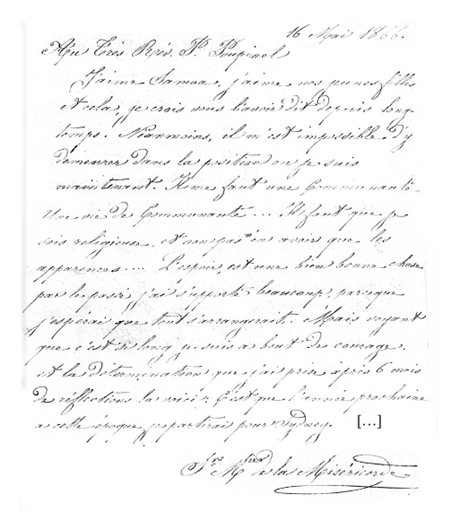 16 Mai 1866.
Au Très Rév. P. Poupinel
J'aime Samoa, j'aime nos jeunes filles
et cela, je crois vous l'avoir dit depuis long
temps. Néanmains, il m'est impossible d'y
demeurer dans la position ou je suis
maintenant. Il me faut une Communauté -
Une vie de Communauté ... Il faut que je
sois religieuse, et non pas n'en avoir que les
apparences.... L'espoir, est une bien bonne chose
par le passé j'ai supporté beaucoup, parceque
j'espérai que tout s'arrangerait. Mais voyant
que c'est si long, je suis a bout de courage,
et la détermination que j'ai prise après 6 mois
de réflections la voici : C'est que l'année prochaine
a cette époque je partirais pour Sydney. [...]
Sr M. de la Miséricorde